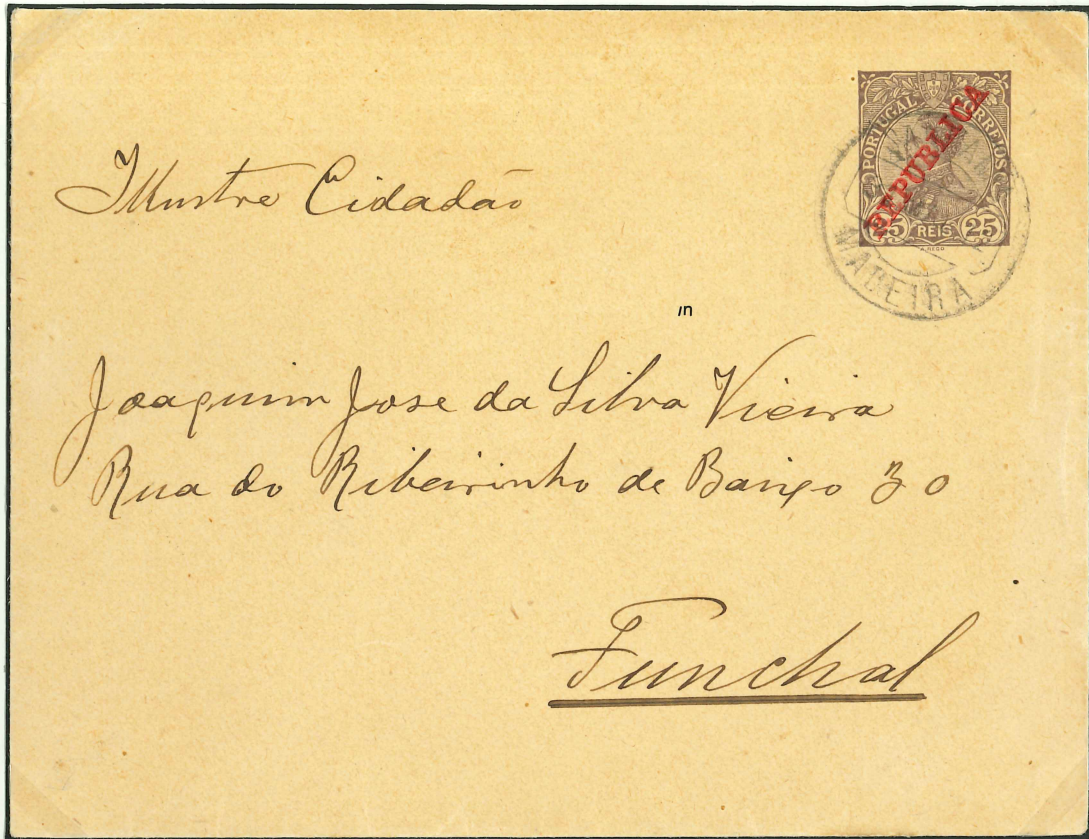 PORTUGAL CORREIOS
REPUBLICA
25 REIS 25
MADEIRA
Illustre Cidadão
in
Joaquim Jose da Silva Vieira
Rua do Ribeirinho de Baixo 30
Funchal